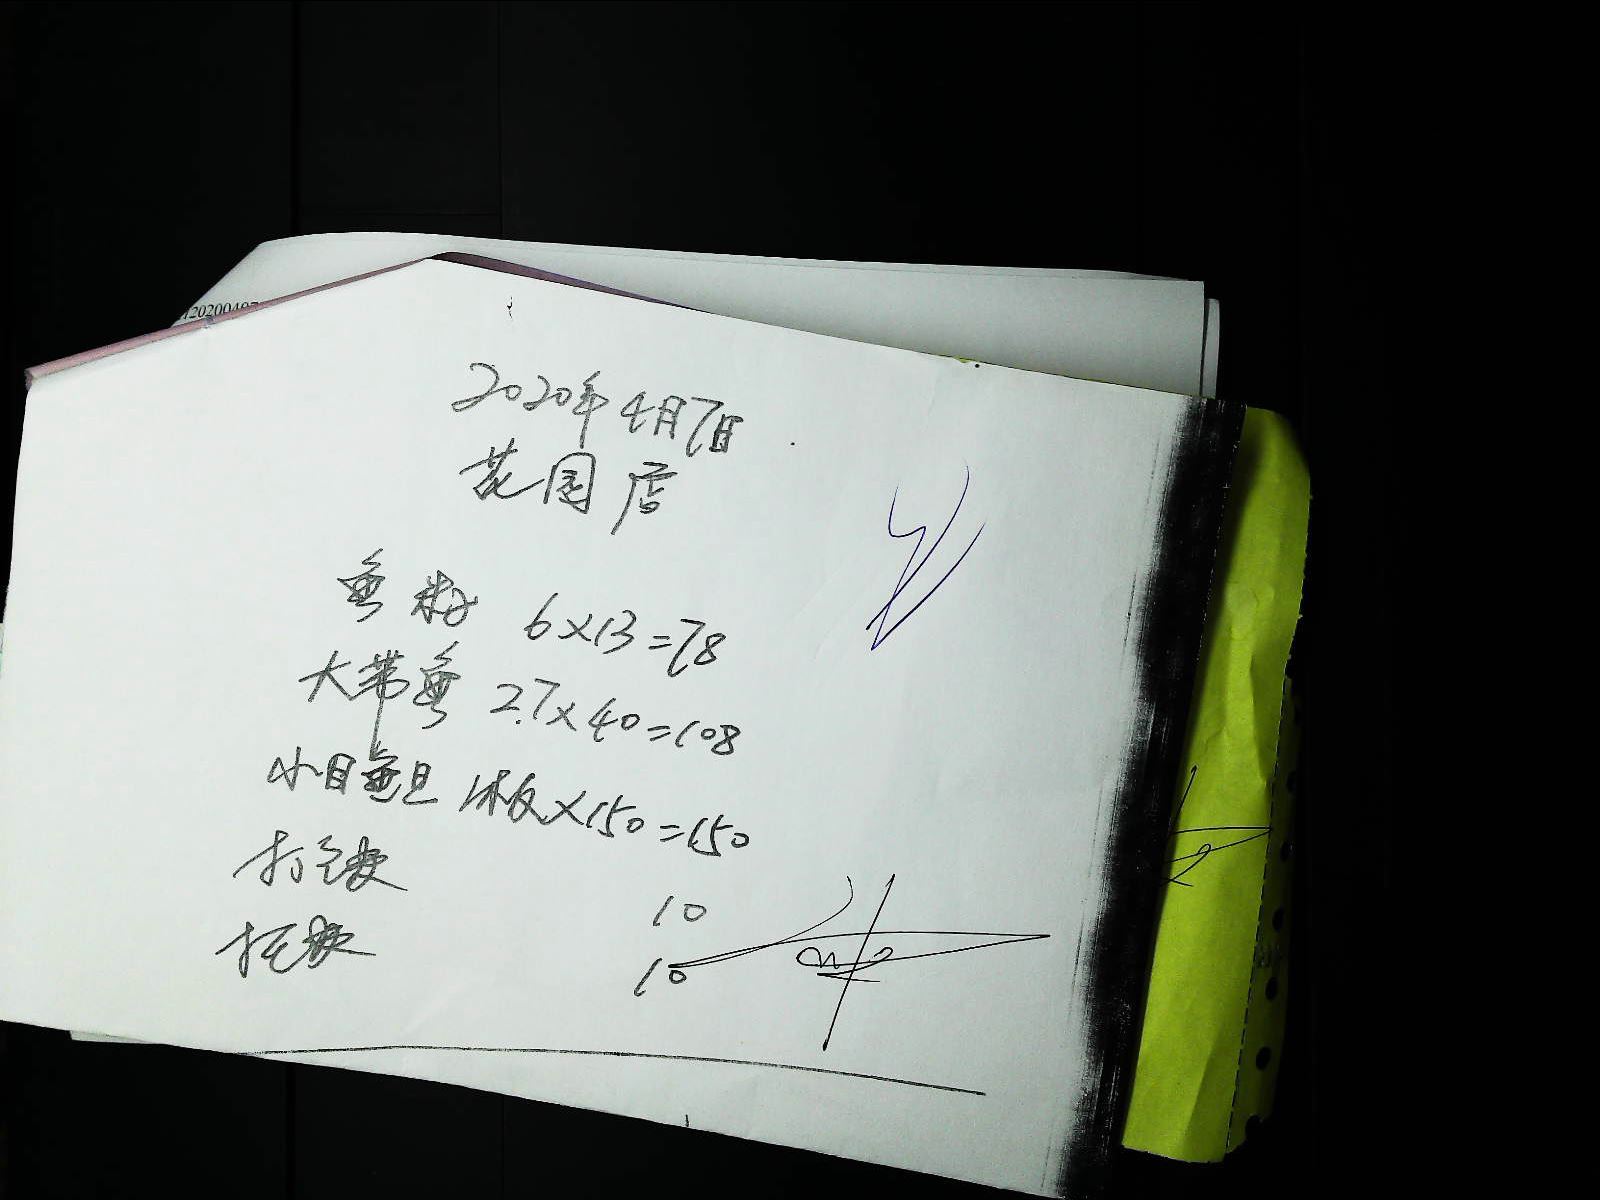 120200407
2020年4月7日
花园店
鱼籽 6×13=78
大带鱼 2.7×40=108
小目鱼旦 1板×150=150
打包费 10
托费 10